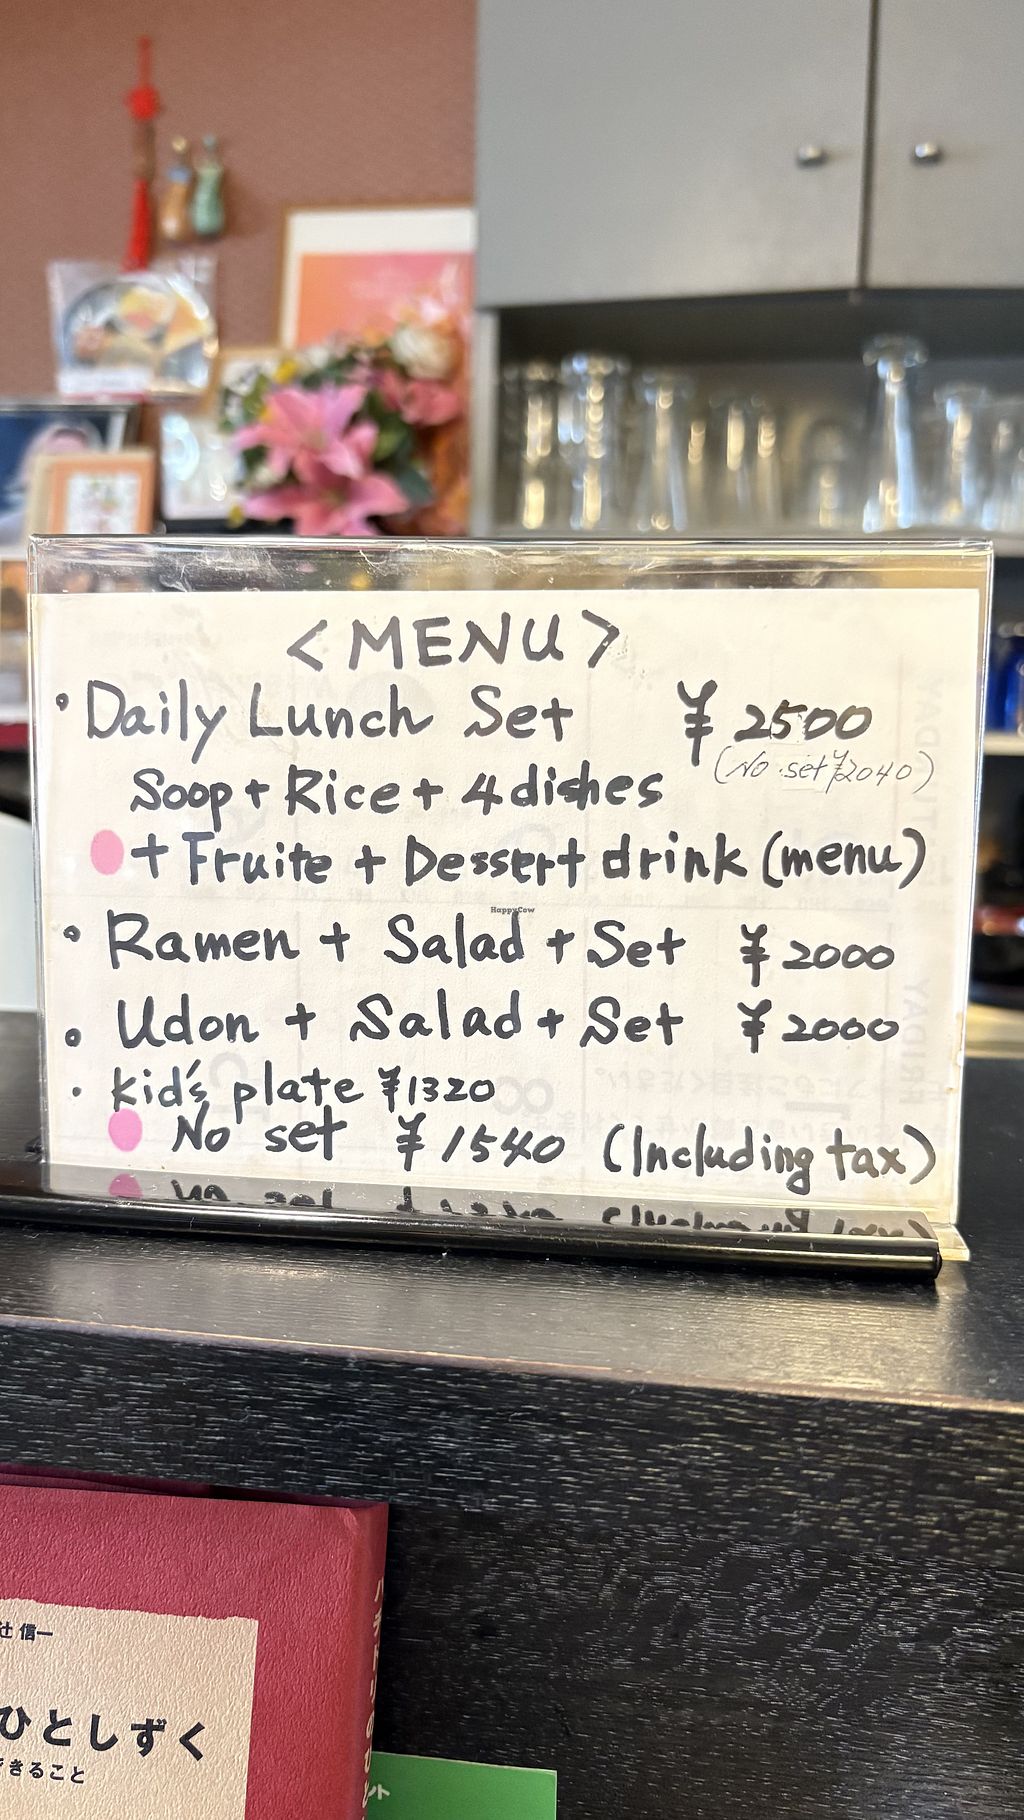 <MENU>
・Daily Lunch Set ¥2500
(No set ¥2040)
Soop + Rice + 4 dishes
+ Fruite + Dessert drink (menu)
HappyCow
・Ramen + Salad + Set ¥2000
・Udon + Salad + Set ¥2000
・kid's plate ¥1320
No set ¥1540 (Including tax)
辻 信一
ひとしずく
できること